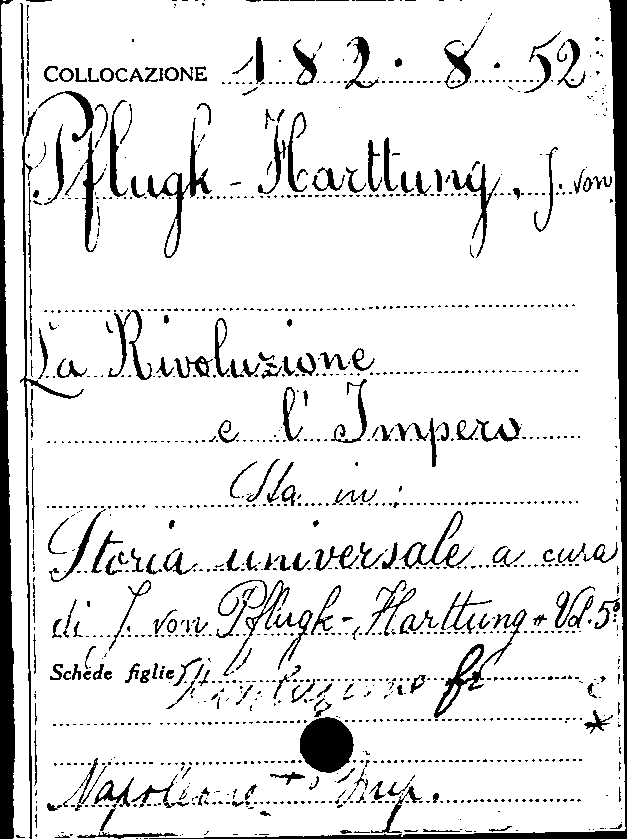 COLLOCAZIONE 182.8.52
Pflugk-Harttung, J. von
La Rivoluzione
e l'Impero
Sta in:
Storia universale a cura
di J. von Pflugk-Harttung * Vol. 5°
Schede figlie Rivoluzione fr
e
*
Napoleone Imp.